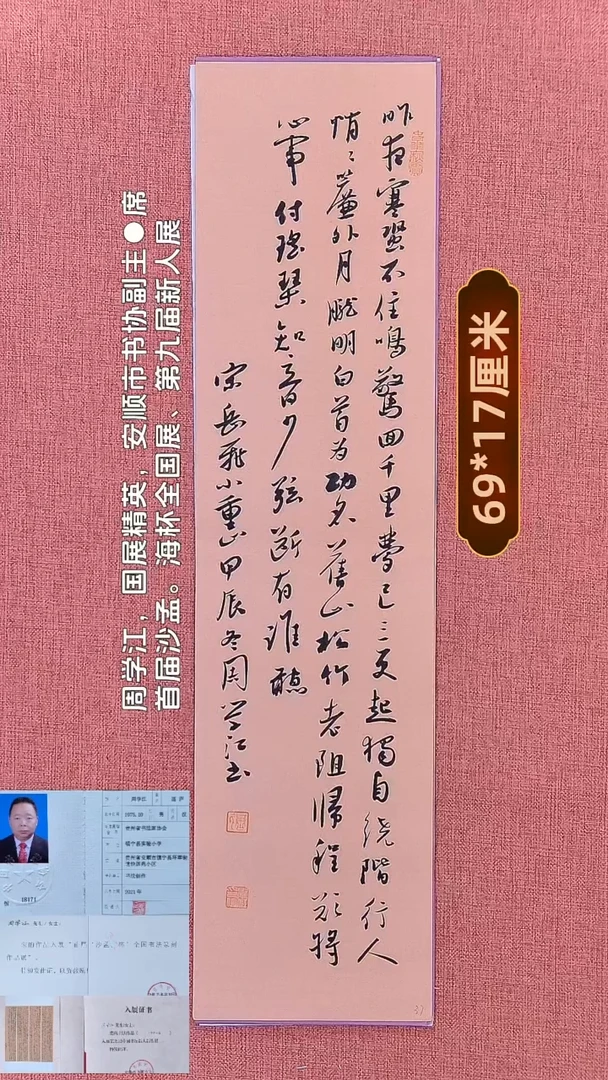 昨夜寒蛩不住鳴驚回千里夢已三更起獨自繞階行人
悄〻簾外月朧明白首为功名舊山松竹老阻歸程欲將
心事付瑤琴知音少弦断有誰聽
宋岳飛小重山甲辰冬周学江书
周学江，国展精英，安顺市书协副主●席
首届沙孟。海杯全国展、第九届新人展
69*17厘米
周学江
贵州省书法家协会
镇宁县实验小学
入展证书